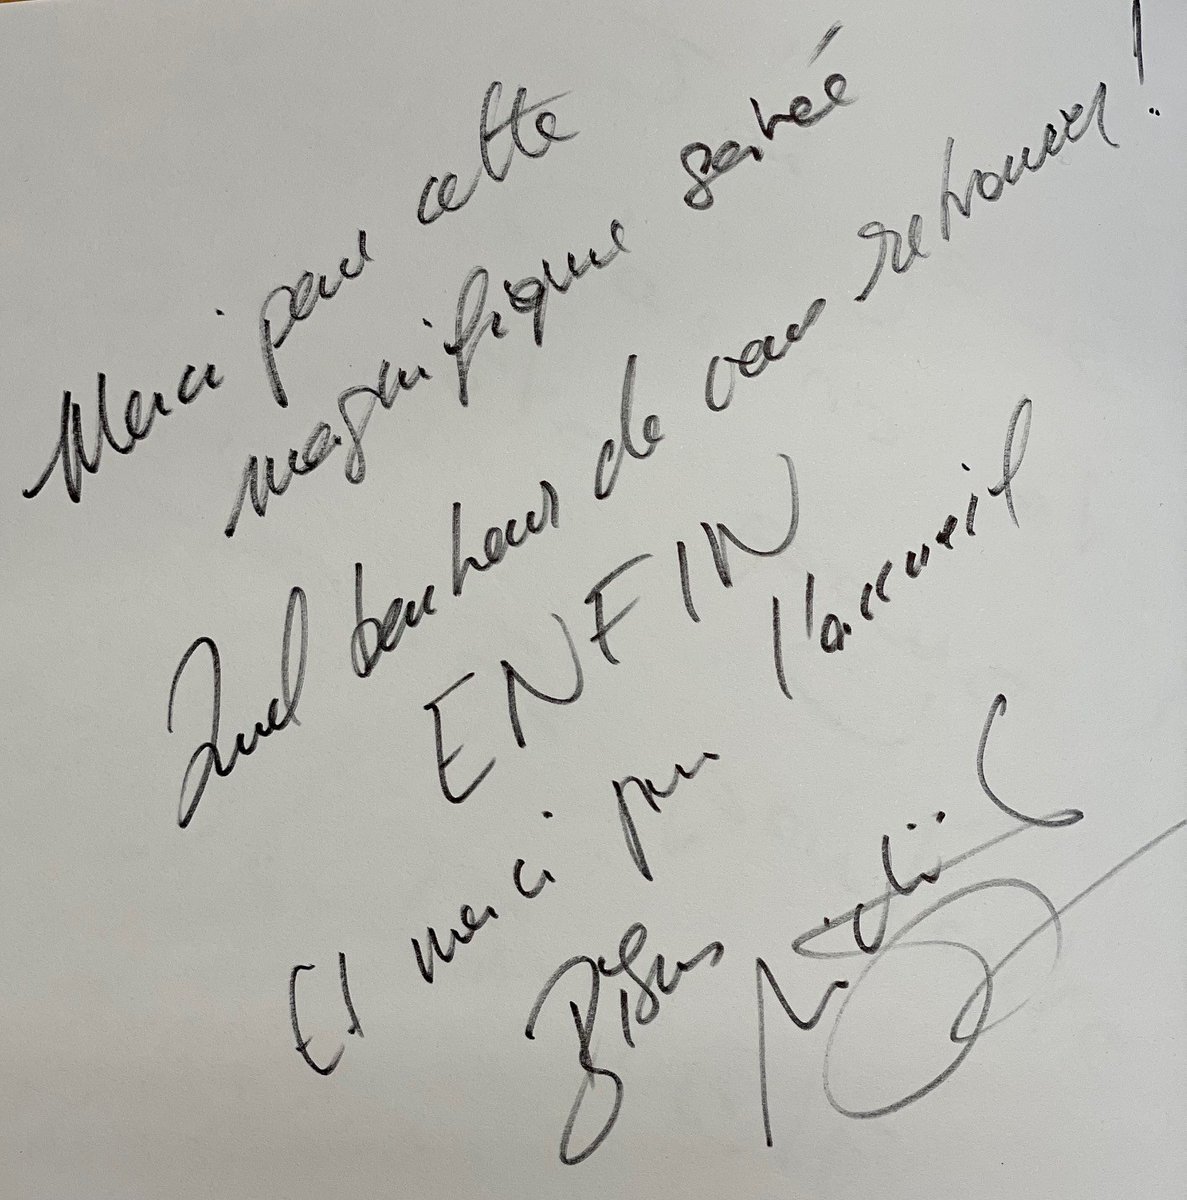 Merci pour cette
magnifique soirée
Quel bonheur de vous retrouver !
ENFIN
Et merci pour l'accueil
Bisous